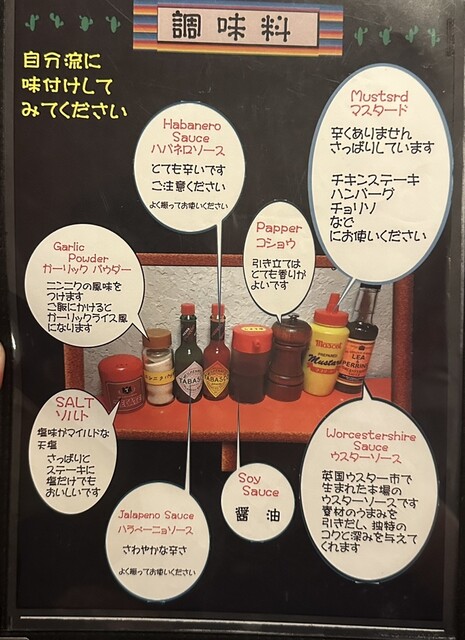 調味料
自分流に
味付けして
みてください
Habanero
Sauce
ハバネロソース
とても辛いです
ご注意ください
よく振ってお使いください
Mustsrd
マスタード
辛くありません
さっぱりしています
チキンステーキ
ハンバーグ
チョリソ
など
にお使いください
Papper
コショウ
引き立ては
とても香りが
よいです
Garlic
Powder
ガーリック パウダー
ニンニクの風味を
つけます
ご飯にかけると
ガーリックライス風
になります
SALT
ソルト
塩味がマイルドな
天塩
さっぱりと
ステーキに
塩だけでも
おいしいです
Jalapeno Sauce
ハラペーニョソース
さわやかな辛さ
よく振ってお使いください
Soy
Sauce
醤 油
Worcestershire
Sauce
ウスターソース
英国ウスター市で
生まれた本場の
ウスターソースです
素材のうまみを
引きだし、独特の
コクと深みを与えて
くれます
TABAS
TABASC
Mascot
Mustard
LEA
PERRINS